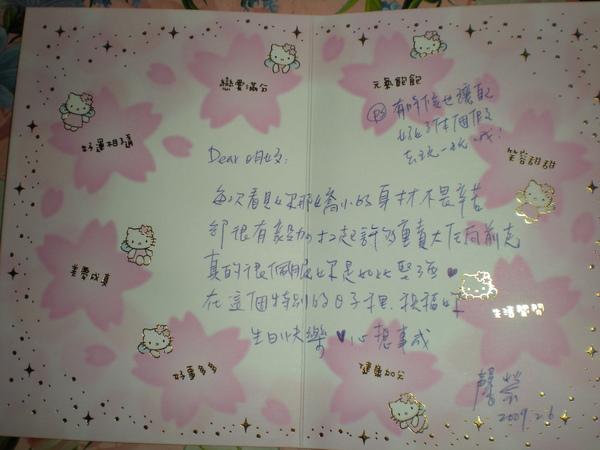 戀愛滿分
元氣飽飽
好運相隨
笑容甜甜
美夢成真
生活闆闆
好事多多
健康加分
PS 有時候也讓自
己休個假
去玩一玩哦!
Dear 明妏:
每次看見妳那嬌小的身材不畏辛苦
卻很有毅力扛起許多重責大任向前走
真的很佩服妳是如此堅強♥
在這個特別的日子裡.祝福妳
生日快樂♥心想事成
馨瑩
2009.2.6